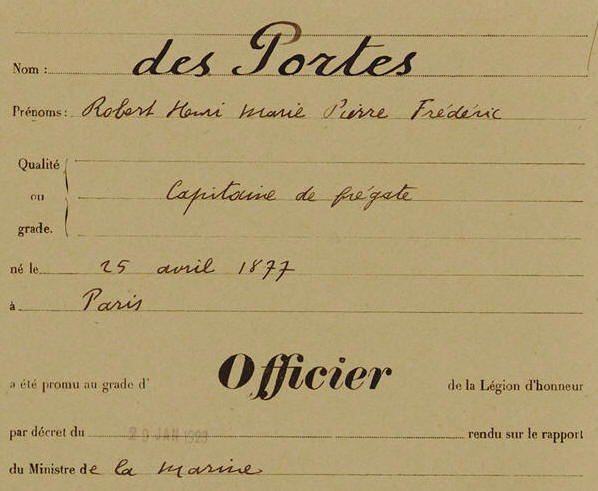 Nom : des Portes
Prénoms : Robert Henri Marie Pierre Frédéric
Qualité
ou
Capitaine de frégate
grade.
né le 25 avril 1877
à Paris
a été promu au grade d' Officier de la Légion d'honneur
par décret du 29 JAN 1923 rendu sur le rapport
du Ministre de la Marine